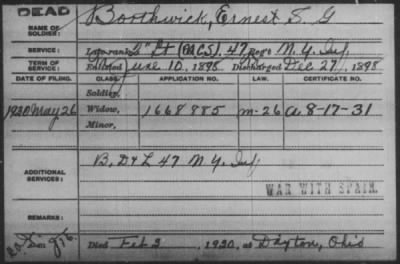 DEAD
NAME OF SOLDIER: Boothwick, Ernest S. G
SERVICE: 2" Lt (B&CS), 47 Reg't N. Y. Inf.
TERM OF SERVICE: Enlisted June 10, 1898 Discharged Dec 27, 1898
DATE OF FILING. CLASS. APPLICATION NO. LAW. CERTIFICATE NO.
Soldier,
1920 May 26 Widow, 1668885 m-26 a. 8-17-31
Minor,
ADDITIONAL SERVICES: B, D & L 47 N Y Inf
WAR WITH SPAIN.
REMARKS:
Died Feb 2, 1920, at Dayton, Ohio